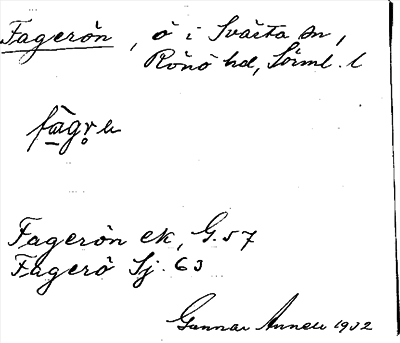 Fagerön, ö i Svärta sn,
Rönö hd, Sörml. l
Fagerön ek, G. 57
Fagerö Sj. 63
Gunnar Anneu 1932